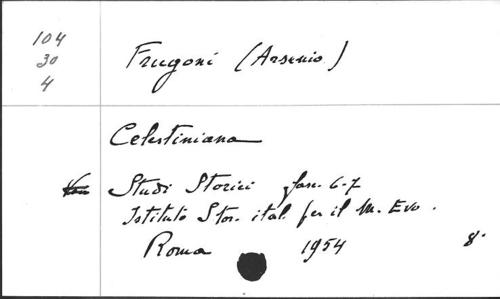 104
30
4
Frugoni (Arsenio)
Celestiniana
Studi Storici fasc. 6-7
Istituto Stor. ital. per il M. Evo.
Roma 1954 8°